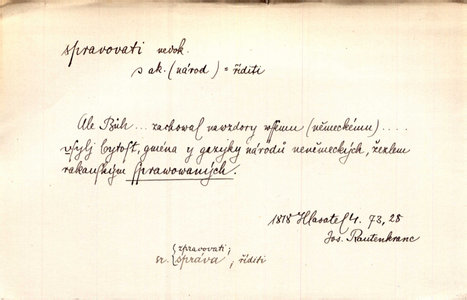 spravovati nedok.
s ak. (národ) = říditi
Ale Bůh ... zachowal nawzdory wssemu (německému) ....
vsylj bytost, gména y gazyky národů neněmeckých, žezlem
rakauským sprawowaných.
1818 Hlasatel 4. 73, 28
Jos. Rautenkranc
zpravovati;
sr. správa, říditi